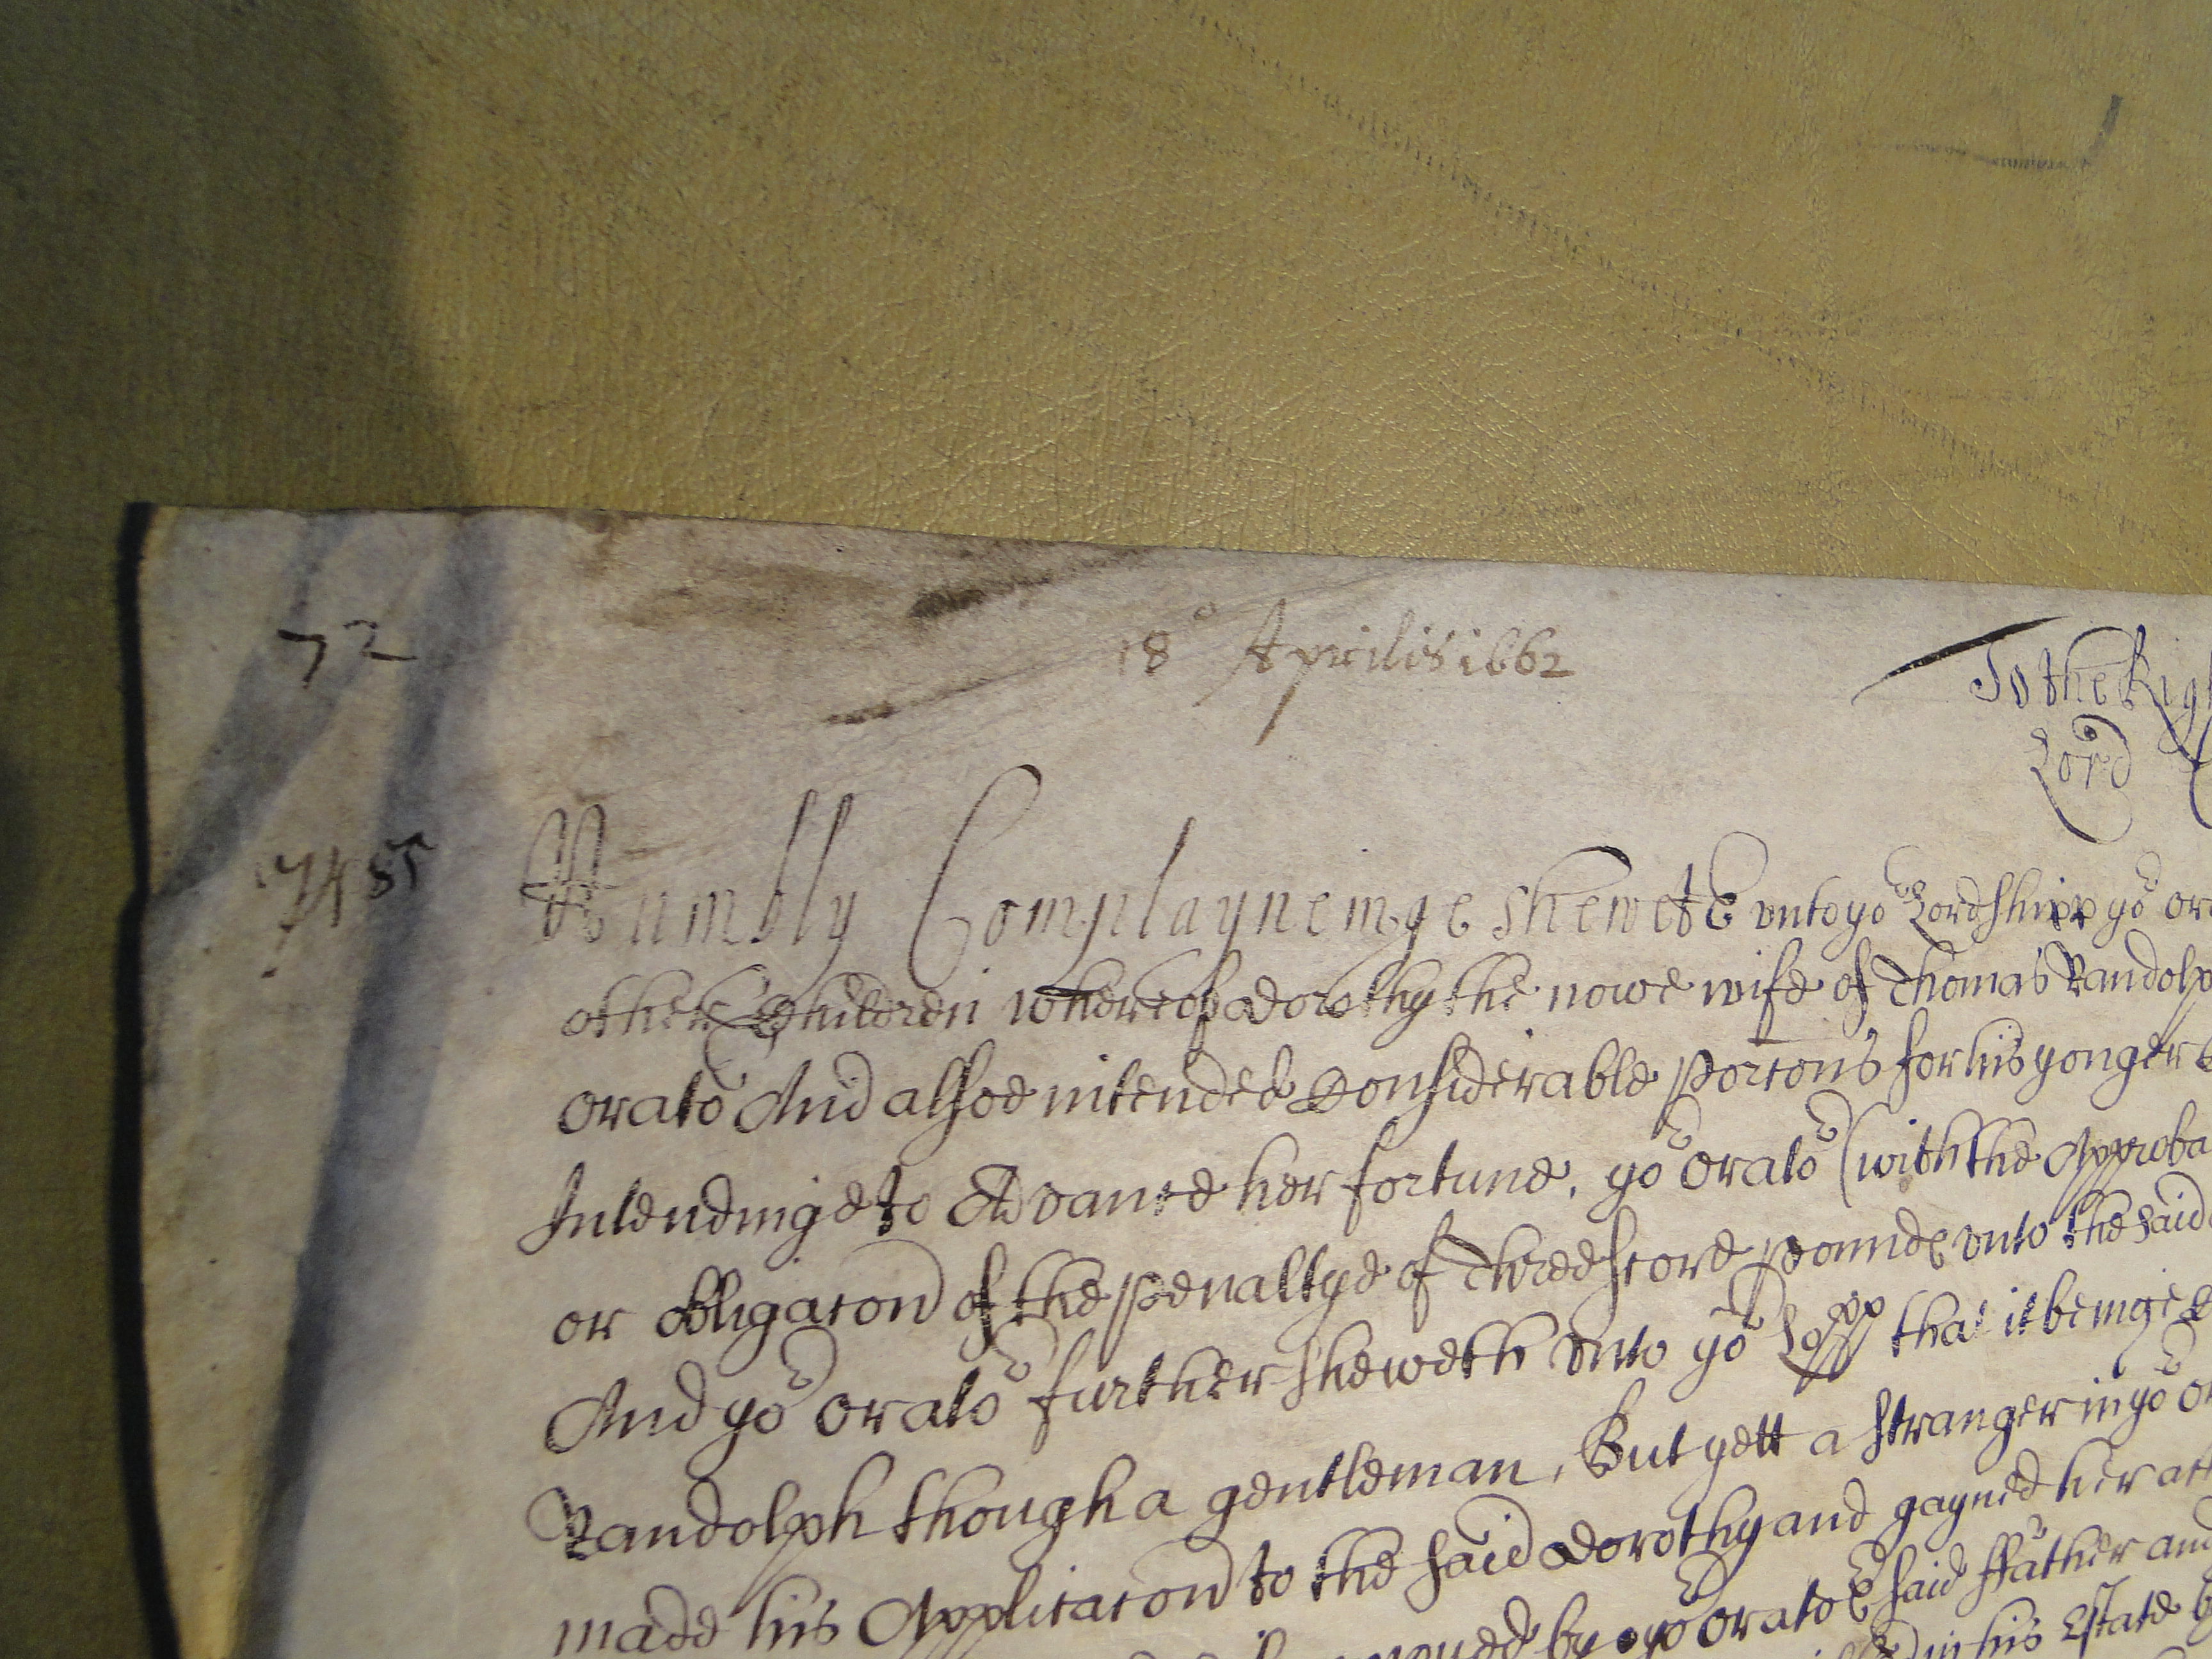 72
18° Aprilis 1662
To the Righ
Lord
85
Humbly Complayneinge sheweth unto yor Lordshipp yor ora
other Children whereof Dorothy the nowe wife of Thomas Randolp
orator And alsoe intended Considerable porcons for his yonger
Intendinge to Advance her fortune, yor orator (with the Approba
or obligacon of the penaltye of Threescore pounds unto the said
And yor orator further sheweth unto yor Lopp that it beinge
Randolph though a gentleman, But yett a stranger in yor or
made his Applicacon to the said Dorothy and gayned her
by yor orators said ffather and
in his Estate